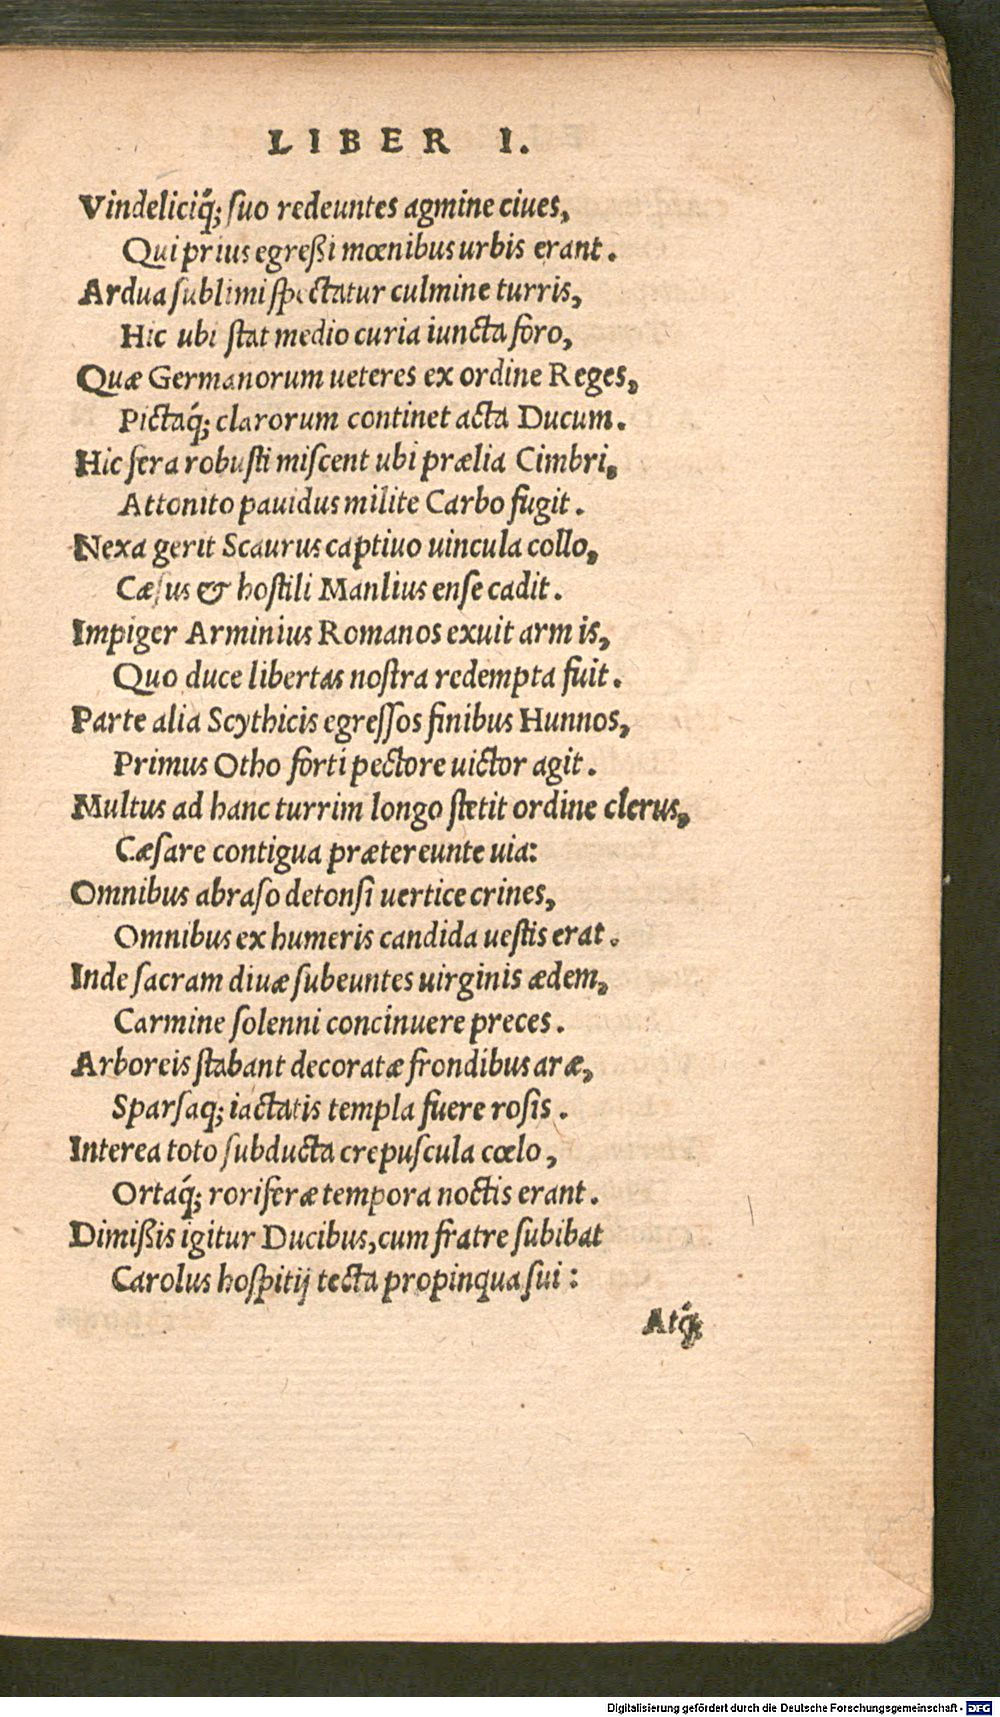 LIBER I.
Vindeliciq́; ſuo redeuntes agmine ciues,
Qui prius egreßi mœnibus urbis erant.
Ardua ſublimi ſpectatur culmine turris,
Hic ubi ſtat medio curia iuncta foro,
Quæ Germanorum ueteres ex ordine Reges,
Pictaq́; clarorum continet acta Ducum.
Hic fera robuſti miſcent ubi prælia Cimbri,
Attonito pauidus milite Carbo fugit.
Nexa gerit Scaurus captiuo uincula collo,
Cæſus & hoſtili Manlius enſe cadit.
Impiger Arminius Romanos exuit armis,
Quo duce libertas noſtra redempta fuit.
Parte alia Scythicis egreſſos finibus Hunnos,
Primus Otho forti pectore uictor agit.
Multus ad hanc turrim longo ſtetit ordine clerus,
Cæſare contigua prætereunte uia:
Omnibus abraſo detonſi uertice crines,
Omnibus ex humeris candida ueſtis erat.
Inde ſacram diuæ ſubeuntes uirginis ædem,
Carmine ſolenni concinuere preces.
Arboreis ſtabant decoratæ frondibus aræ,
Sparſaq; iactatis templa fuere roſis.
Interea toto ſubducta crepuſcula cœlo,
Ortaq́; roriferæ tempora noctis erant.
Dimißis igitur Ducibus, cum fratre ſubibat
Carolus hoſpitij tecta propinqua ſui:
Atq́;
Digitalisierung gefördert durch die Deutsche Forschungsgemeinschaft - DFG